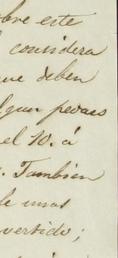 bre este
considera
que deben
algun pedaso
el 10. á
. Tambien
de unos
vertido;